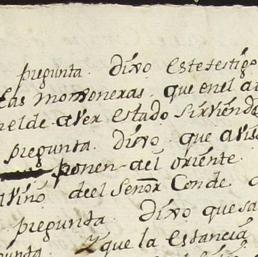 pregunta. Dixo este testigo
las monteneras, que en el a
el de aver estado sirviendo
pregunta. Dixo, que a vis
ponen- del oriente
avino del Señor Conde. a
pregunta. Dixo que sa
punta. Y que la Estancia